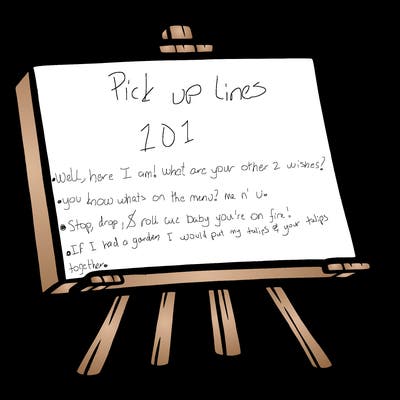 Pick up lines
101
•Well, here I am! what are your other 2 wishes?
•you know whats on the menu? me n' u.
•Stop, drop, & roll cuz baby you're on fire!
•If I had a garden I would put my tulips & your tulips
together.